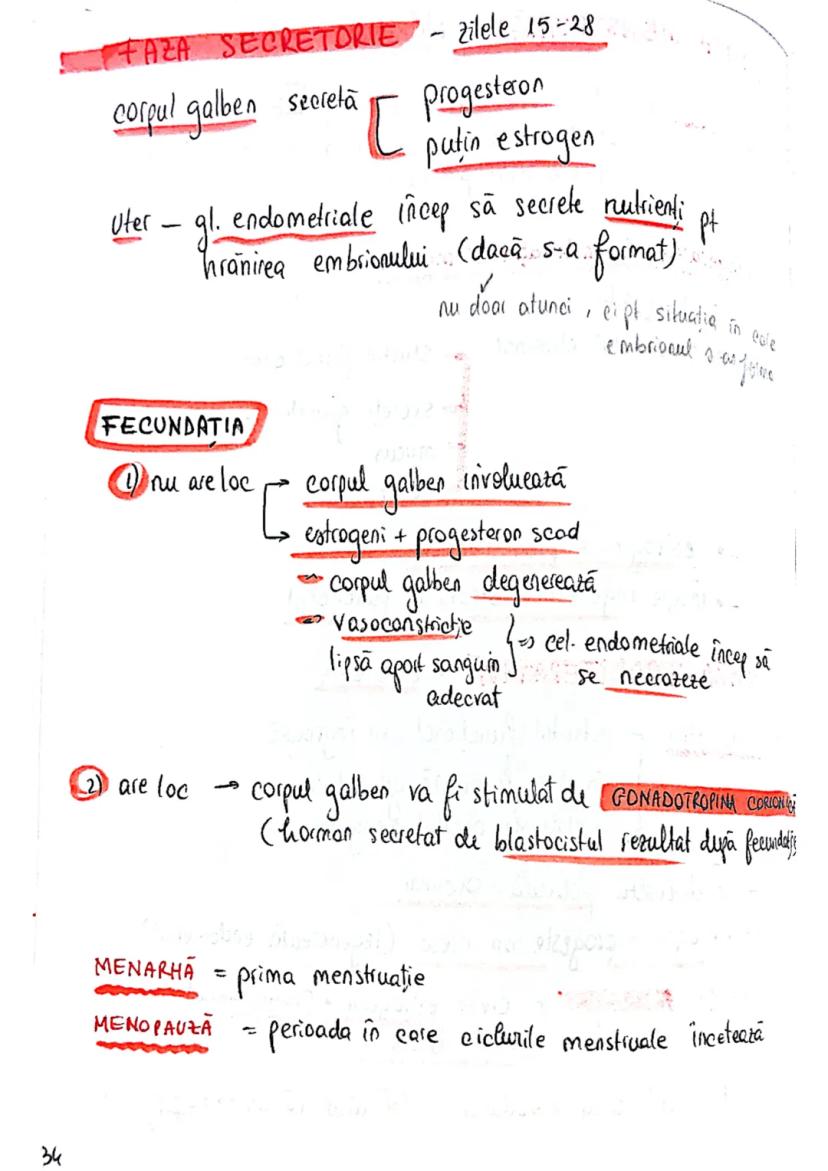 FAZA SECRETORIE - zilele 15-28
corpul galben secretă [ progesteron
puțin estrogen
Uter - gl. endometriale încep să secrete nutrienți pt
hrănirea embrionului (dacă s-a format)
nu doar atunci, ci pt situația în care
embrionul s-ar forma
FECUNDAȚIA
1) nu are loc → corpul galben involuează
→ estrogeni + progesteron scad
corpul galben degenerează
vasoconstricție
lipsă aport sanguin } => cel. endometriale încep să
adecvat se necrozeze
2) are loc → corpul galben va fi stimulat de GONADOTROPINA CORIONICĂ
(hormon secretat de blastocistul rezultat după fecundație
MENARHĂ = prima menstruație
MENOPAUZĂ = perioada în care ciclurile menstruale încetează
34